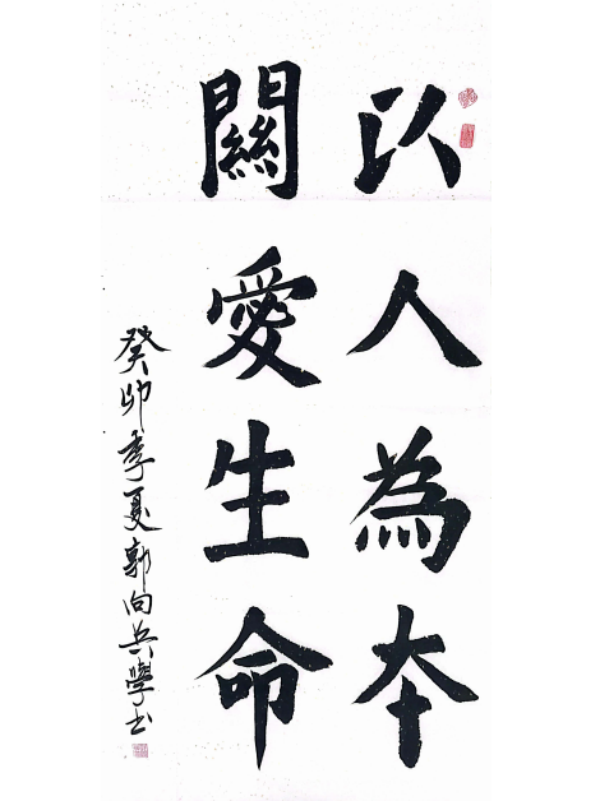 以人為本
關愛生命
癸卯季夏郭向兵學书